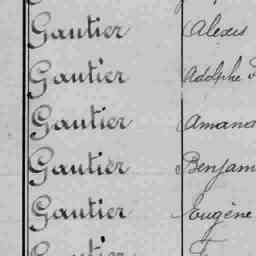 Gautier Alexis
Gautier Adolphe
Gautier
Gautier
Gautier Eugène